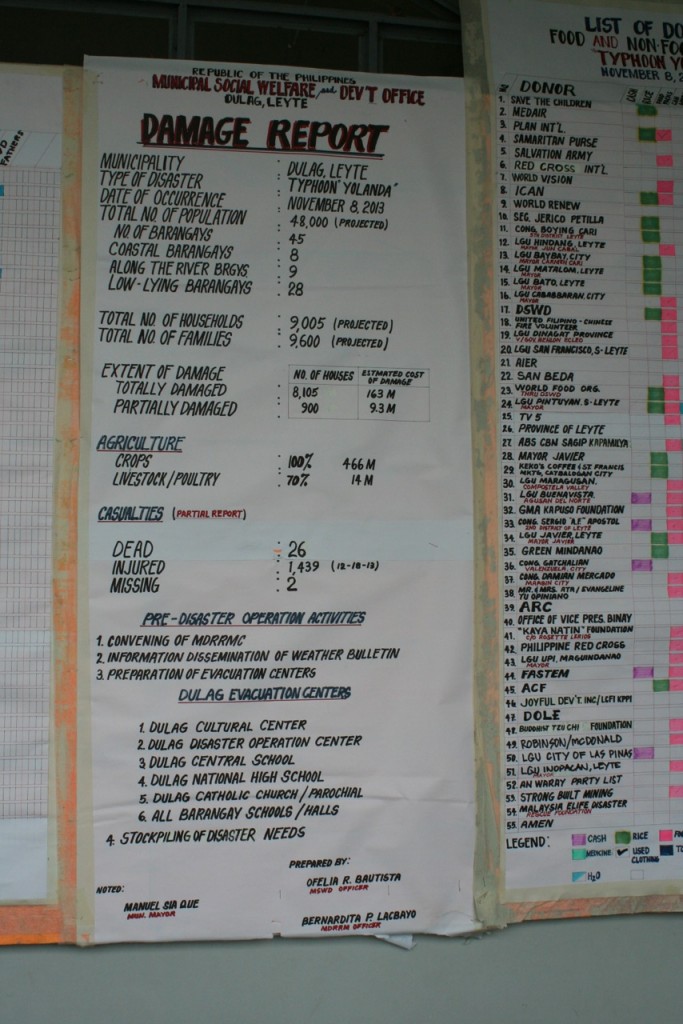 FATHERS
REPUBLIC OF THE PHILIPPINES
MUNICIPAL SOCIAL WELFARE and DEV'T OFFICE
DULAG, LEYTE
DAMAGE REPORT
MUNICIPALITY : DULAG, LEYTE
TYPE OF DISASTER : TYPHOON "YOLANDA"
DATE OF OCCURRENCE : NOVEMBER 8, 2013
TOTAL NO. OF POPULATION : 48,000 (PROJECTED)
NO OF BARANGAYS : 45
COASTAL BARANGAYS : 8
ALONG THE RIVER BRGYS : 9
LOW-LYING BARANGAYS : 28
TOTAL NO. OF HOUSEHOLDS : 9,005 (PROJECTED)
TOTAL NO. OF FAMILIES : 9,600 (PROJECTED)
EXTENT OF DAMAGE : NO. OF HOUSES ESTIMATED COST OF DAMAGE
TOTALLY DAMAGED : 8,105 163 M
PARTIALLY DAMAGED : 900 9.3 M
AGRICULTURE
CROPS : 100% 466 M
LIVESTOCK/POULTRY : 70% 14 M
CASUALTIES (PARTIAL REPORT)
DEAD : 26
INJURED : 1,439 (12-18-13)
MISSING : 2
PRE-DISASTER OPERATION ACTIVITIES
1. CONVENING OF MDRRMC
2. INFORMATION DISSEMINATION OF WEATHER BULLETIN
3. PREPARATION OF EVACUATION CENTERS
DULAG EVACUATION CENTERS
1. DULAG CULTURAL CENTER
2. DULAG DISASTER OPERATION CENTER
3. DULAG CENTRAL SCHOOL
4. DULAG NATIONAL HIGH SCHOOL
5. DULAG CATHOLIC CHURCH / PAROCHIAL
6. ALL BARANGAY SCHOOLS / HALLS
4. STOCKPILING OF DISASTER NEEDS
PREPARED BY:
OFELIA R. BAUTISTA
MSWD OFFICER
NOTED:
MANUEL SIA QUE
MUN. MAYOR
BERNARDITA P. LACBAYO
MDRRM OFFICER
LIST OF DO
FOOD AND NON-FO
TYPHOON Y
NOVEMBER 8, 2
DONOR
1. SAVE THE CHILDREN
2. MEDAIR
3. PLAN INT'L
4. SAMARITAN PURSE
5. SALVATION ARMY
6. RED CROSS INT'L
7. WORLD VISION
8. ICAN
9. WORLD RENEW
10. SEG. JERICO PETILLA
11. CONG. BOYING CARI
5TH DISTRICT LEYTE
12. LGU HINDANG, LEYTE
MAYOR
13. LGU BAYBAY, CITY
MAYOR CARMEN CARI
14. LGU MATALOM, LEYTE
MAYOR
15. LGU BATO, LEYTE
MAYOR
16. LGU CABARBARAN, CITY
MAYOR
17. DSWD
18. UNITED FILIPINO - CHINESE
FIRE VOLUNTEER
19. LGU DINAGAT PROVINCE
20. LGU SAN FRANCISCO, S-LEYTE
21. AIER
22. SAN BEDA
23. WORLD FOOD ORG.
THRU DSWD
24. LGU PINTUYAN, S-LEYTE
MAYOR
25. TV 5
26. PROVINCE OF LEYTE
27. ABS CBN SAGIP KAPAMILYA
28. MAYOR JAVIER
29. KEKO'S COFFEE & ST FRANCIS
MKTG, CATBALOGAN CITY
30. LGU MARAGUSAN,
COMPOSTELA VALLEY
31. LGU BUENAVISTA,
AGUSAN DEL NORTE
32. GMA KAPUSO FOUNDATION
33. CONG. SERGIO "A.F." APOSTOL
2ND DISTRICT OF LEYTE
34. LGU JAVIER, LEYTE
MAYOR JAVIER
35. GREEN MINDANAO
36. CONG. GATCHALIAN
VALENZUELA, CITY
37. CONG. DAMIAN MERCADO
MAASIN CITY
38. MR. & MRS. EVANGELINE
TU OPINIANO
39. ARC
40. OFFICE OF VICE PRES. BINAY
41. "KAYA NATIN" FOUNDATION
42. PHILIPPINE RED CROSS
43. LGU UPI, MAGUINDANAO
44. FASTEM
45. ACF
46. JOYFUL DEV'T. INC/LCFI KPPI
47. DOLE
48. BUDDHIST TZU CHI FOUNDATION
49. ROBINSON/McDONALD
50. LGU CITY OF LAS PIÑAS
51. LGU INOPACAN, LEYTE
MAYOR
52. AN WARAY PARTY LIST
53. STRONG BUILT MINING
54. MALAYSIA ELIFE DISASTER
RESCUE FOUNDATION
55. AMEN
LEGEND: CASH RICE
MEDICINE USED CLOTHING
H2O